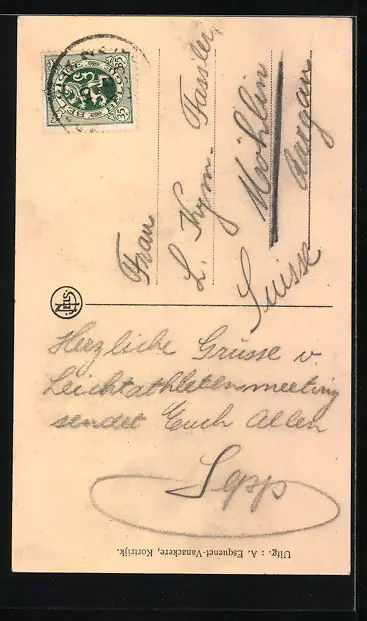 BELGIQUE BELGIE
35 35
Frau
L. Kym-Fassler
Möhlin
Aargau
Suisse
NELS
Herzliche Grüsse v.
Leichtathletenmeeting
sendet Euch Allen
Sepp
Uitg. : A. Esquenet-Vanackere, Kortrijk.